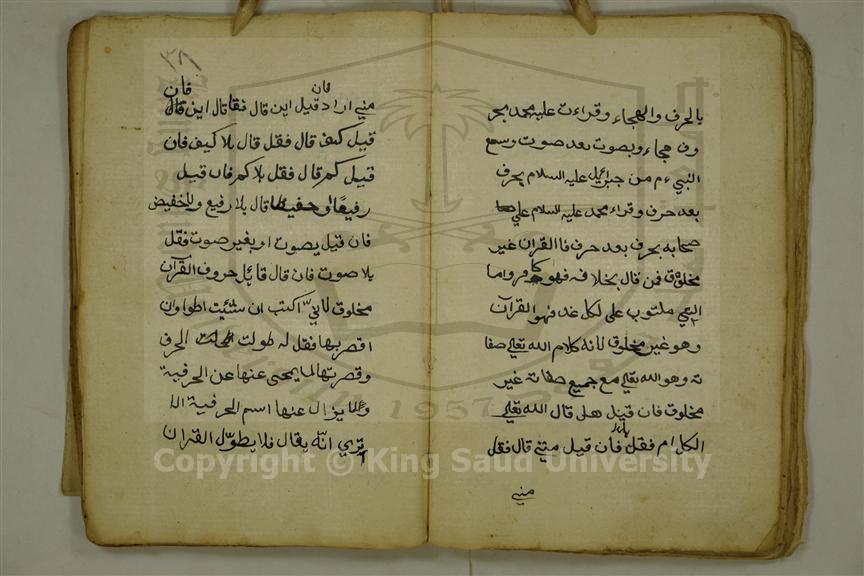 بالحرف والهجاء وقراءت عليه محمد بحر
وف هجاء وبصوت بعد صوت وسمع
النبيء م من جبرائيل عليه السلام بحرف
بعد حرف وقراء محمد عليه السلام علي
صحابه بحرف بعد حرف فا القران غير
مخلوق فمن قال بخلافه فهو كافر واما
مكتوب على لكاغد فهو القرآن
وهو غير مخلوق لانه كلام الله تعلى صفا
ته وهو الله تعلى مع جميع صفاته غير
مخلوق فان قيل هل قال الله تعلى
الكلام فقل فان قيل متي قال فقل
متي
٣٨
فان
متي اراد قيل اين قال فقل قال اين قال فان
قيل كيف قال فقل قال بلا كيف فان
قيل كم قال فقل بلا كم فان قيل
رفيعا او حفيظا قال بلا رفيع ولا خفيض
فان قيل بصوت او بغير صوت فقل
بلا صوت فان قال قائل حروف القرآن
مخلوق لاني اكتب ان شئيت اطوا وان
اقصر بها فقل له طولت الحرف
وقصرتها لما يمحى عنها عن الحرفية
ولما يزال عنها اسم الحرفية الا
تري انه يقال فلا يطول القران
Copyright © King Saud University
1957